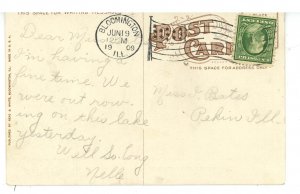 THIS SPACE FOR WRITING MESSAGES
BLOOMINGTON
JUN 19
12 30 PM
1909
ILL.
POST
CARD
THIS SPACE FOR ADDRESS ONLY
Dear M
I'm having a
fine time. We
were out row-
ing on this lake
yesterday.
Well So-Long
Nelle
Miss I. Bates
Pekin Ill.